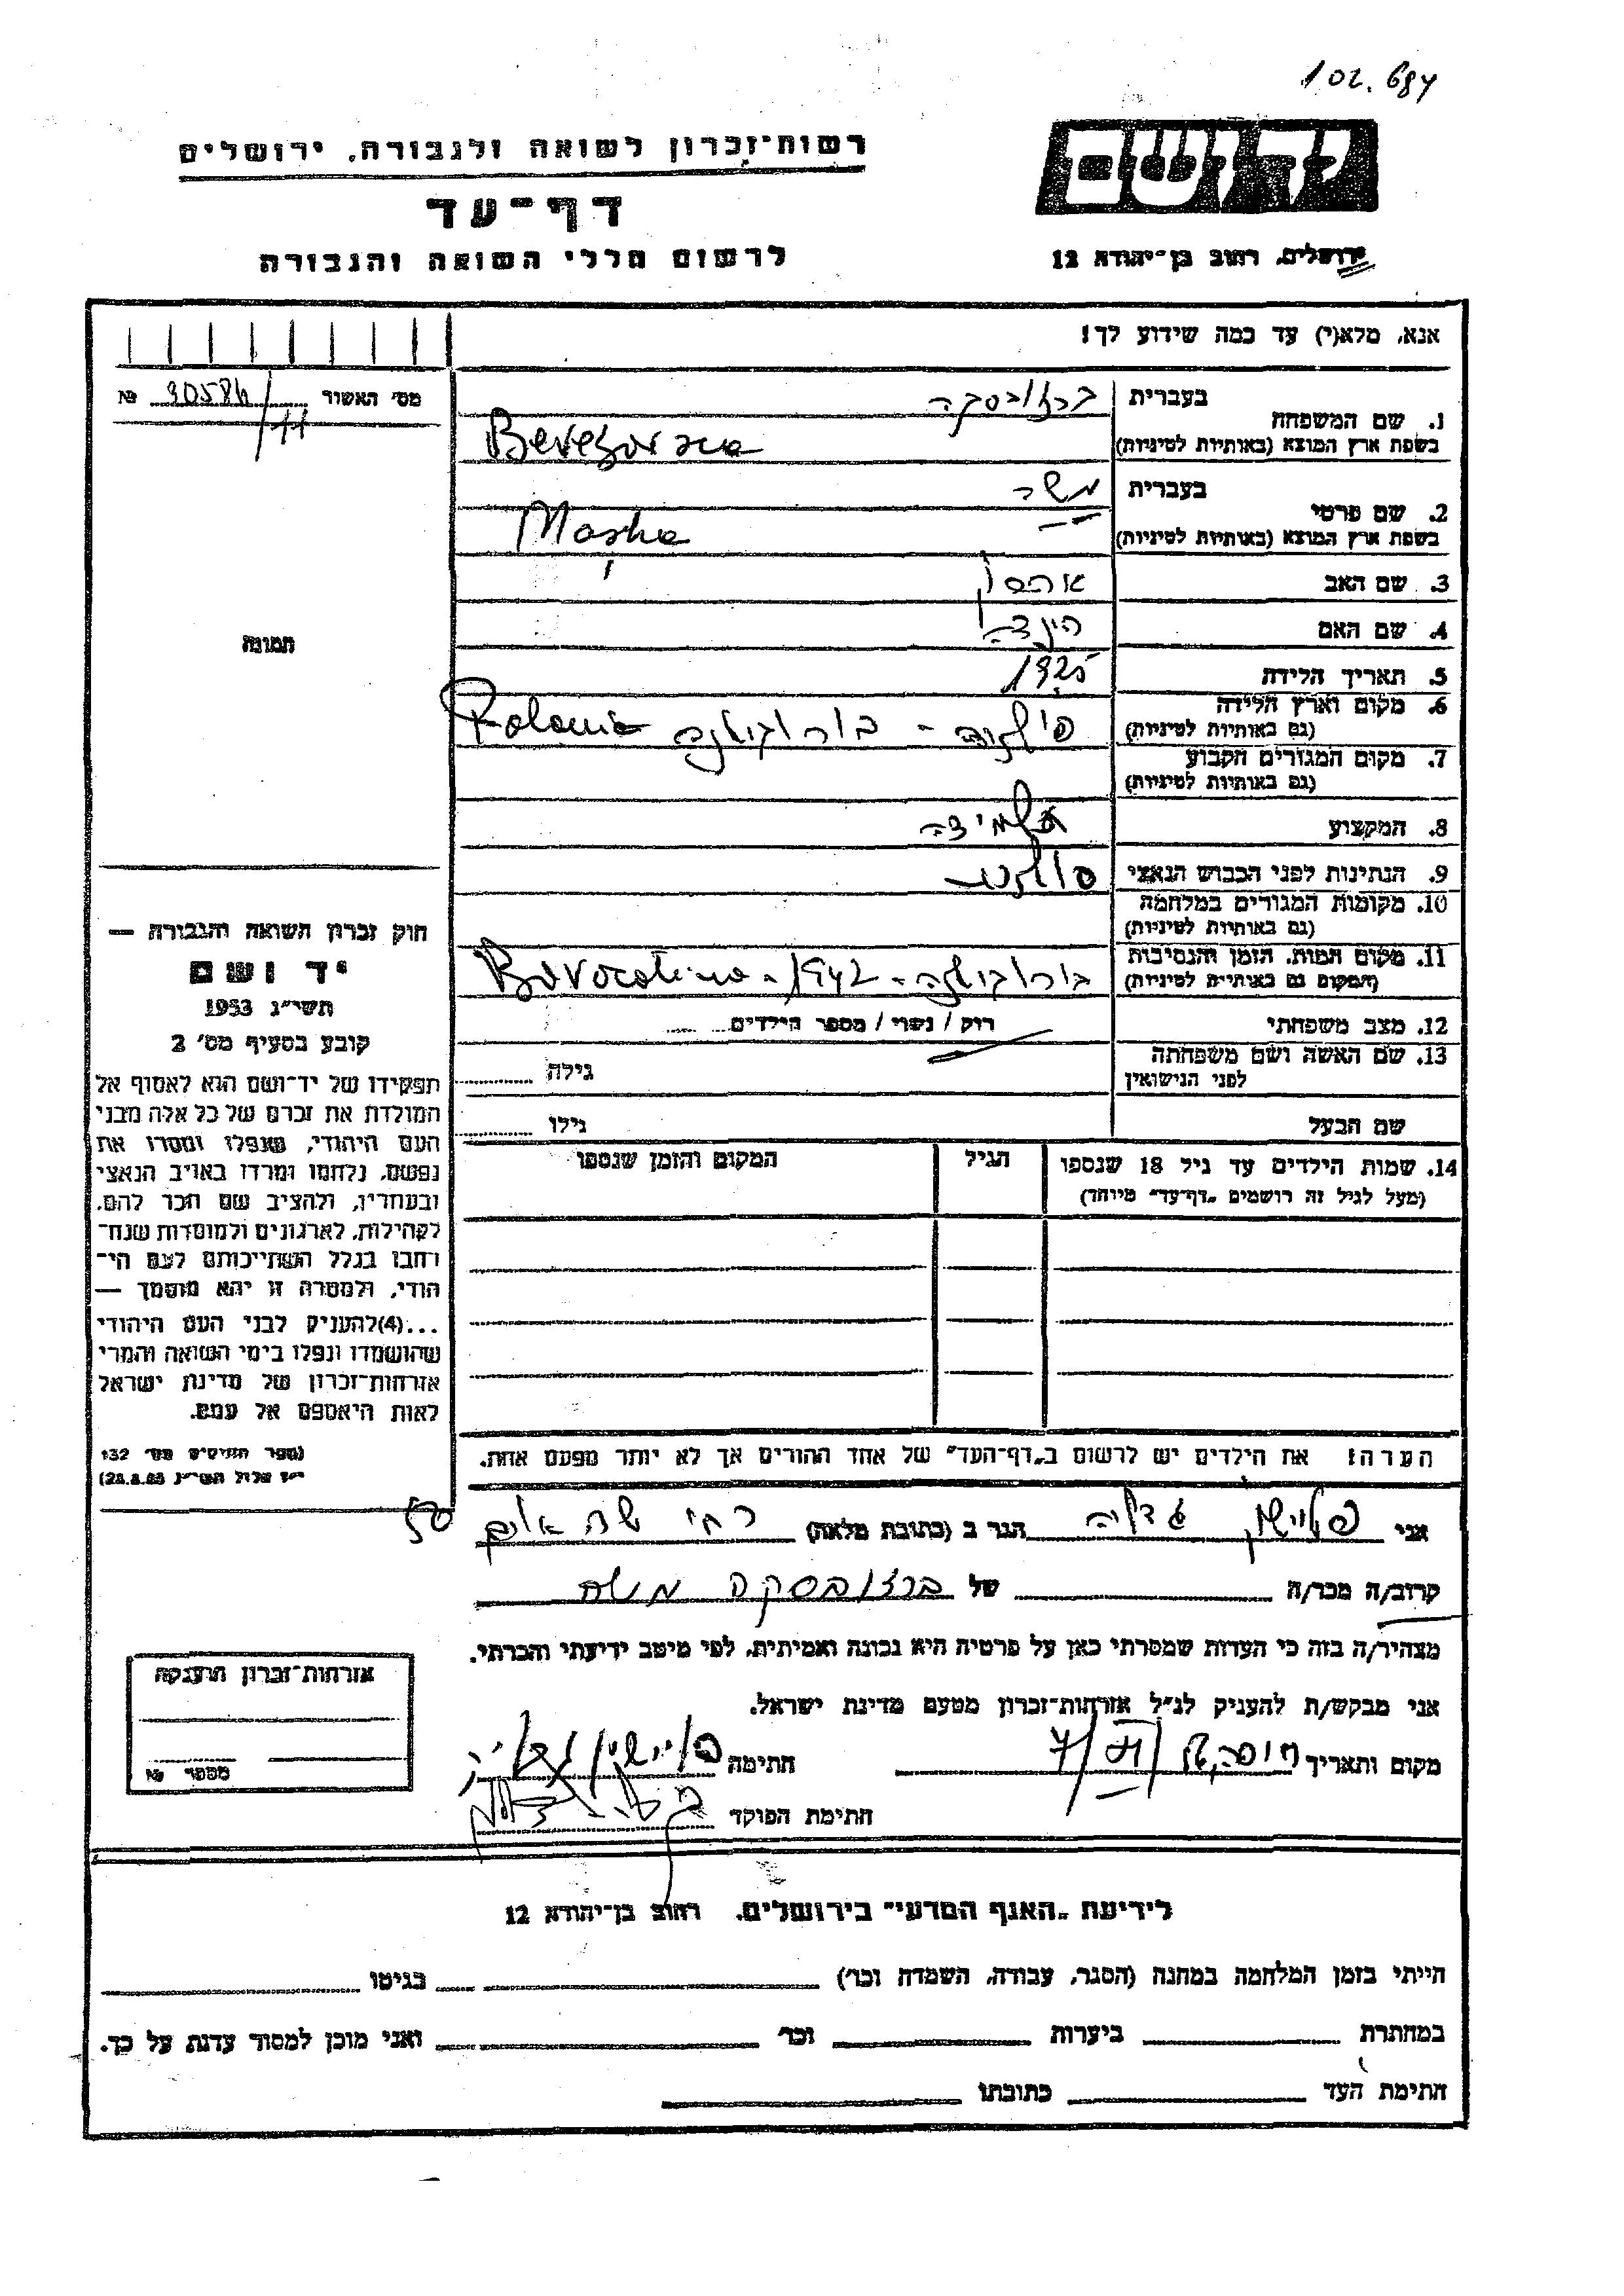 102.684
יד ושם
רשות־זכרון לשואה ולגבורה, ירושלים
דף־עד
לרשום חללי השואה והגבורה
ירושלים, רחוב בן־יהודה 12
אנא, מלא(י) עד כמה שידוע לך!
מס׳ האשור № 30584/11
1. שם המשפחה
בעברית ברזובסקה
בשפת ארץ המוצא (באותיות לטיניות)
2. שם פרטי
בעברית משה
בשפת ארץ המוצא (באותיות לטיניות) Masha
3. שם האב
4. שם האם הינדה
5. תאריך הלידה 1925
6. מקום וארץ הלידה
(גם באותיות לטיניות) Polania
7. מקום המגורים הקבוע
(גם באותיות לטיניות)
8. המקצוע תלמידה
9. הנתינות לפני הכבוש הנאצי פולנית
10. מקומות המגורים במלחמה
(גם באותיות לטיניות)
11. מקום המות, הזמן והנסיבות
(המקום גם באותיות לטיניות) 1942
12. מצב משפחתי רווק / נשוי / מספר הילדים
13. שם האשה ושם משפחתה
לפני הנישואין
גילה
שם הבעל גילו
14. שמות הילדים עד גיל 18 שנספו
(מעל לגיל זה רושמים „דף־עד״ מיוחד)
הגיל
המקום והזמן שנספו
הערה: את הילדים יש לרשום ב„דף־העד״ של אחד ההורים אך לא יותר מפעם אחת.
תמונה
חוק זכרון השואה והגבורה —
יד ושם
תשי״ג 1953
קובע בסעיף מס׳ 2
תפקידו של יד־ושם הוא לאסוף אל
המולדת את זכרם של כל אלה מבני
העם היהודי, שנפלו ומסרו את
נפשם, נלחמו ומרדו באויב הנאצי
ובעוזריו, ולהציב שם וזכר להם,
לקהילות, לארגונים ולמוסדות שנח־
רבו בגלל השתייכותם לעם הי־
הודי, ולמטרה זו יהא מוסמך —
...(4) להעניק לבני העם היהודי
שהושמדו ונפלו בימי השואה והמרי
אזרחות־זכרון של מדינת ישראל
לאות היאספם אל עמם.
(ספר החוקים מס׳ 132
י״ז אלול תשי״ג 28.8.53)
אני פליישמן גדליה הגר ב (כתובת מלאה) 50
קרוב/ה מכר/ה של ברזובסקה משה
מצהיר/ה בזה כי העדות שמסרתי כאן על פרטיה היא נכונה ואמיתית, לפי מיטב ידיעתי והכרתי.
אני מבקש/ת להעניק לנ״ל אזרחות־זכרון מטעם מדינת ישראל.
מקום ותאריך חתימה
חתימת הפוקד
אזרחות־זכרון הוענקה
מספר №
לידיעת „האגף המדעי״ בירושלים, רחוב בן־יהודה 12
הייתי בזמן המלחמה במחנה (הסגר, עבודה, השמדה וכו׳) בגיטו
במחתרת ביערות וכו׳ ואני מוכן למסור עדות על כך.
חתימת העד כתובתו